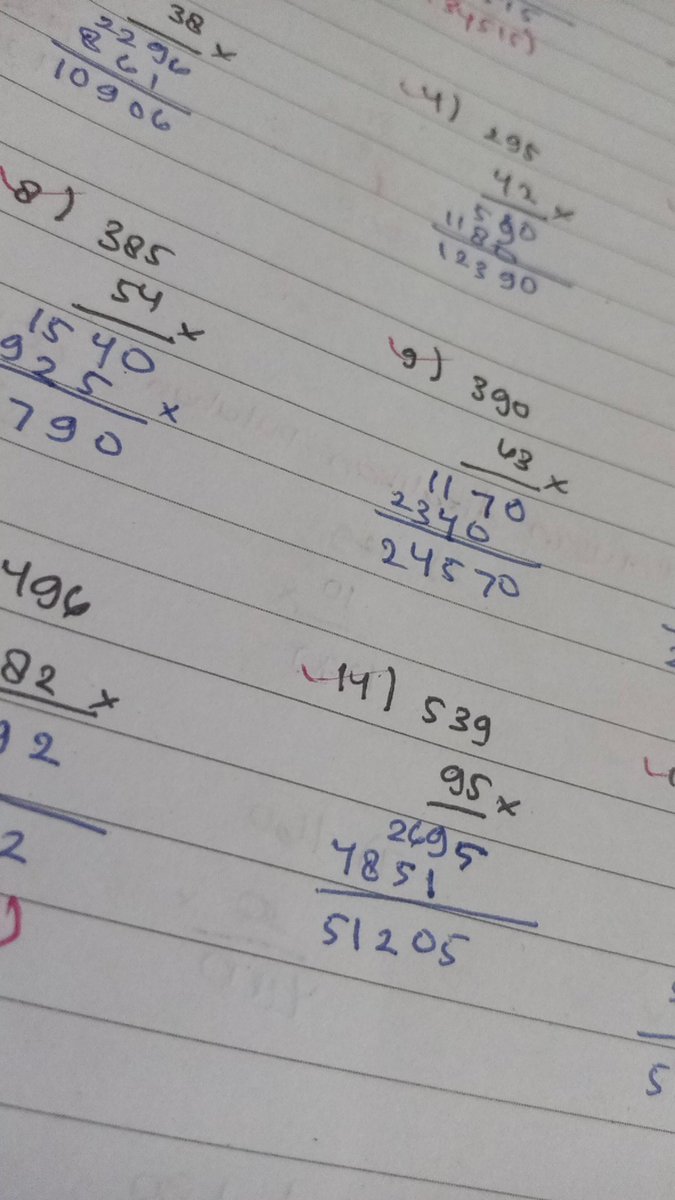 34515)
38 x
2296
861
10906
4) 295
42 x
590
1180
12390
8) 385
54 x
1540
925 x
790
9) 390
63 x
1170
2340
24570
496
82 x
92
2
14) 539
95 x
2695
4851
51205
5